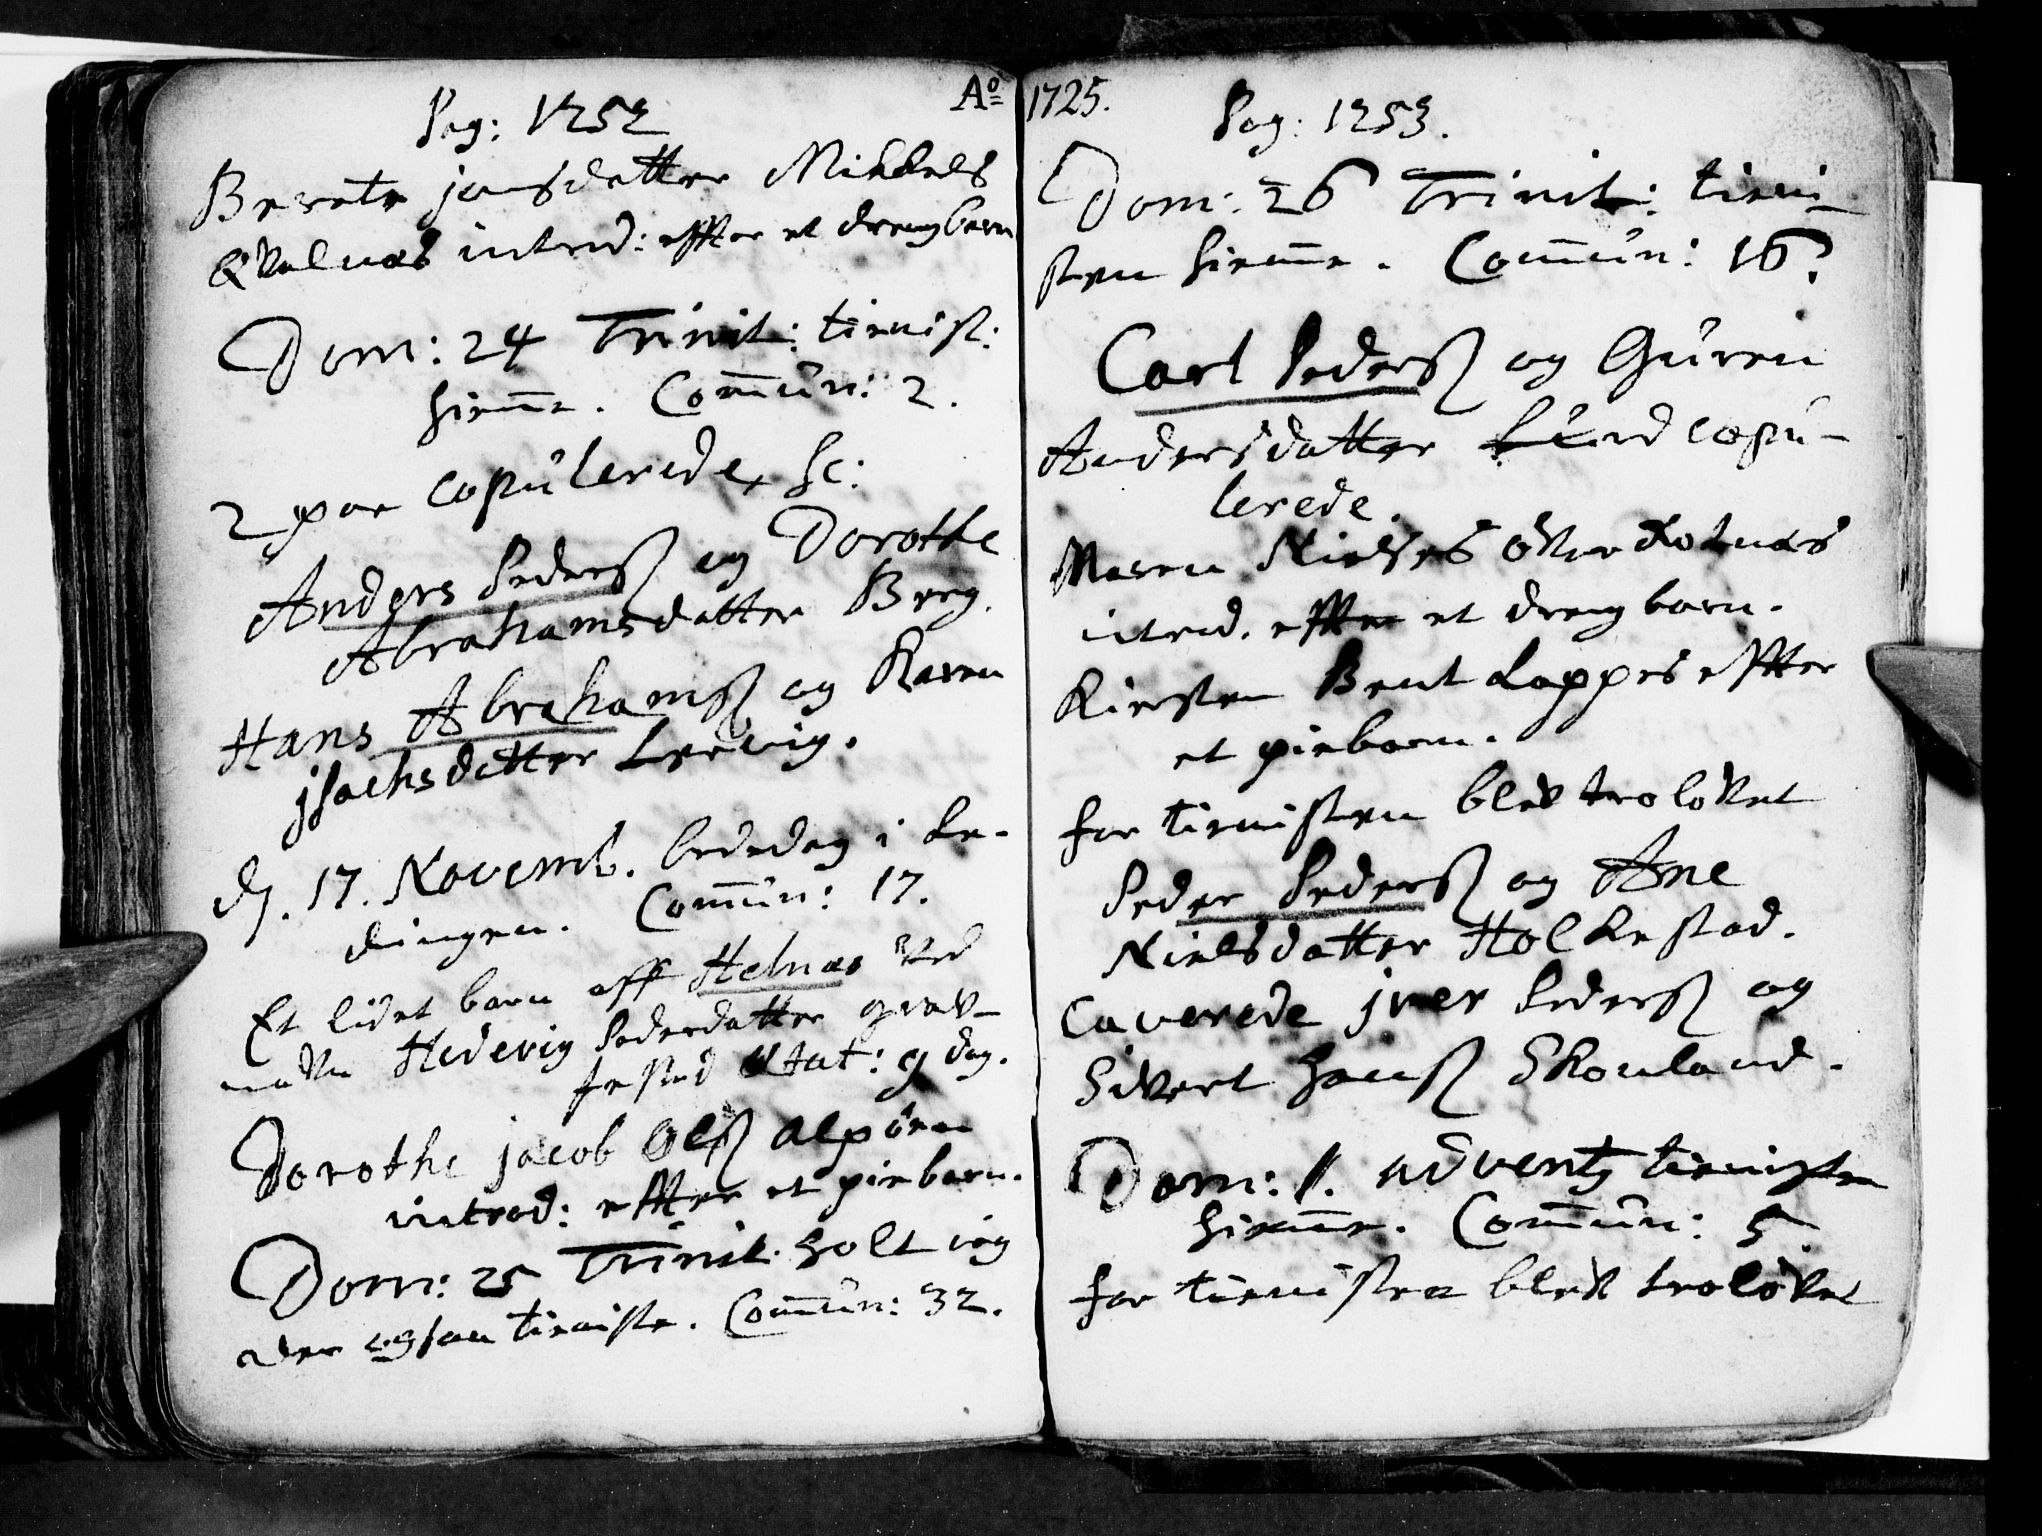 Pag: 1252
Aᵒ
Berete jonsdatter Mikkels
Qvalnæs introd: effter et drengbarn
Dom: 24 Trinit: tienist:
hiem̅e. Com̅un: 2.
2 par copulerede, sc:
Anders Pederß og Dorothe
Abrahamsdatter Berg.
Hans Abrahamß og Karen
jsachsdatter Lervig.
d. 17. Novemb. bededag i Lø-
dingen. Com̅un: 17.
Et lidet barn aff Helnæs ved
nafn Hedevig Pedersdatter grav-
fested Ætat: 9 dag.
Dorothe jacob Olß
introd: effter et piebarn.
Dom: 25 Trinit. holt ieg
der ogsaa tieniste. Com̅un: 32.
1725.
Pag: 1253.
Dom: 26 Trinit: tieni-
sten hiem̅e. Com̅un: 16.
Carl Pederß og Guren
Andersdatter copu-
lerede.
Maren Nielses Kotnæs
introd. effter et drengbarn.
Kiersten Bent Lappes effter
et piebarn.
for tienisten blev trolovet
Peder Pederß og Ane
Nielsdatter Holkestad.
Caverede jver Pederß og
Sivert Hanß Skouland.
Dom: 1. advent tienisten
hiem̅e. Com̅un: 5
for tienisten blev trolovet